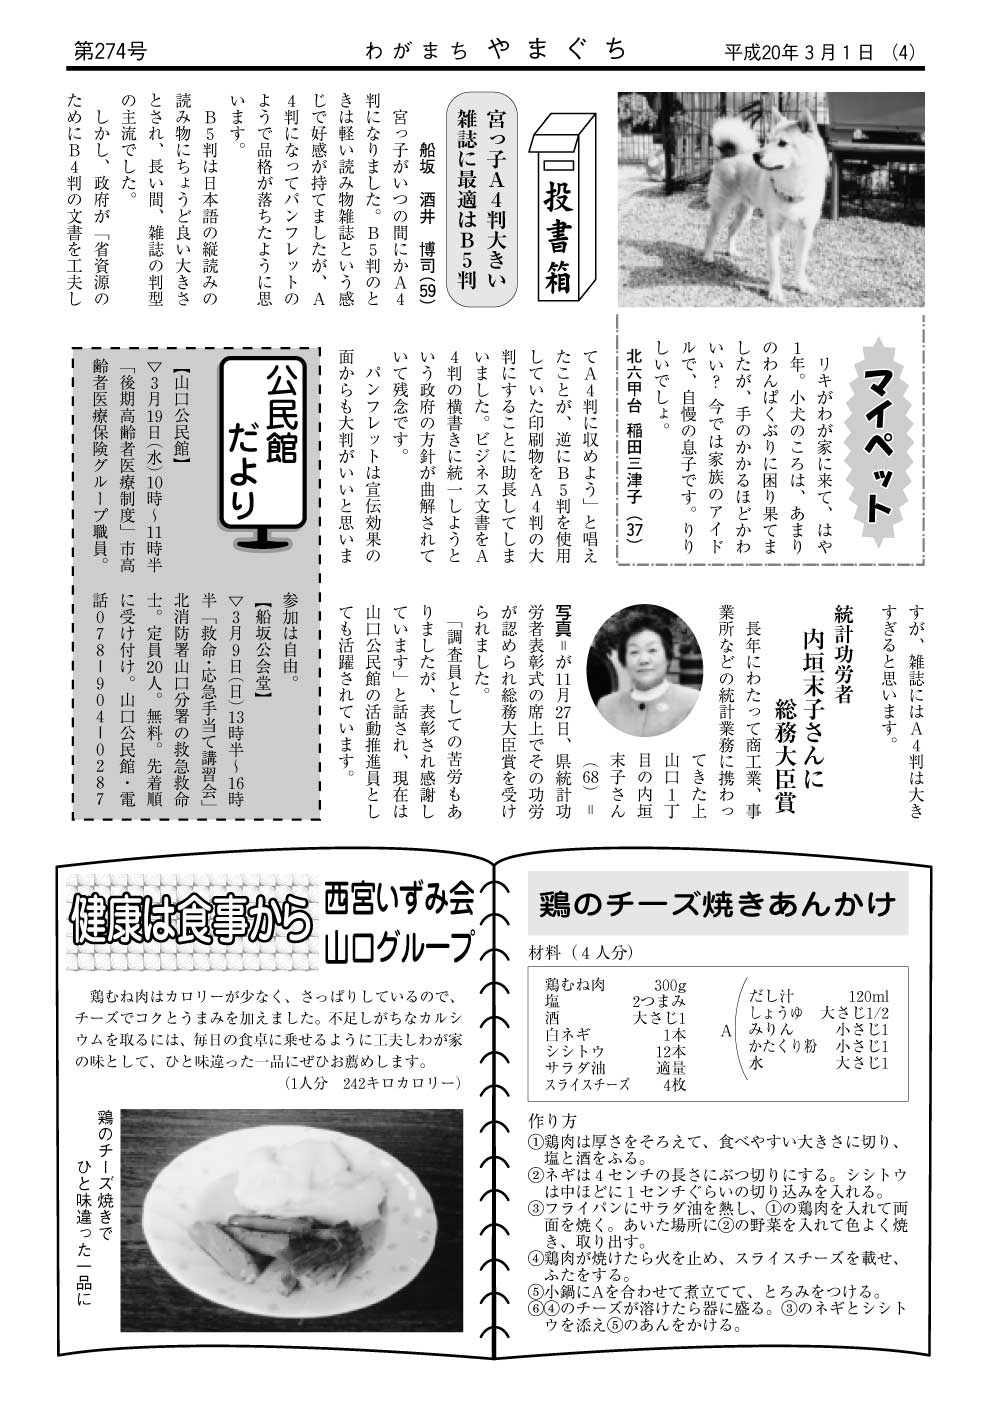 第274号
わがまち やまぐち
平成20年3月1日 (4)
投書箱
宮っ子A4判大きい
雑誌に最適はB5判
船坂 酒井 博司(59)
宮っ子がいつの間にかA4
判になりました。B5判のと
きは軽い読み物雑誌という感
じで好感が持てましたが、A
4判になってパンフレットの
ようで品格が落ちたように思
います。
B5判は日本語の縦読みの
読み物にちょうど良い大きさ
とされ、長い間、雑誌の判型
の主流でした。
しかし、政府が「省資源の
ためにB4判の文書を工夫し
てA4判に収めよう」と唱え
たことが、逆にB5判を使用
していた印刷物をA4判の大
判にすることに助長してしま
いました。ビジネス文書をA
4判の横書きに統一しようと
いう政府の方針が曲解されて
いて残念です。
パンフレットは宣伝効果の
面からも大判がいいと思いま
すが、雑誌にはA4判は大き
すぎると思います。
マイペット
リキがわが家に来て、はや
1年。小犬のころは、あまり
のわんぱくぶりに困り果てま
したが、手のかかるほどかわ
いい?今では家族のアイド
ルで、自慢の息子です。りり
しいでしょ。
北六甲台 稲田三津子(37)
統計功労者
内垣末子さんに
総務大臣賞
長年にわたって商工業、事
業所などの統計業務に携わっ
てきた上
山口1丁
目の内垣
末子さん
(68)=
写真=が11月27日、県統計功
労者表彰式の席上でその功労
が認められ総務大臣賞を受け
られました。
「調査員としての苦労もあ
りましたが、表彰され感謝し
ています」と話され、現在は
山口公民館の活動推進員とし
ても活躍されています。
公民館
だより
【山口公民館】
▽3月19日(水)10時~11時半
「後期高齢者医療制度」市高
齢者医療保険グループ職員。
参加は自由。
【船坂公会堂】
▽3月9日(日)13時半~16時
半「救命・応急手当て講習会」
北消防署山口分署の救急救命
士。定員20人。無料。先着順
に受け付け。山口公民館・電
話078-904-0287
健康は食事から
西宮いずみ会
山口グループ
鶏むね肉はカロリーが少なく、さっぱりしているので、
チーズでコクとうまみを加えました。不足しがちなカルシ
ウムを取るには、毎日の食卓に乗せるように工夫しわが家
の味として、ひと味違った一品にぜひお薦めします。
(1人分 242キロカロリー)
鶏のチーズ焼きで
ひと味違った一品に
鶏のチーズ焼きあんかけ
材料(4人分)
鶏むね肉 300g
塩 2つまみ
酒 大さじ1
白ネギ 1本
シシトウ 12本
サラダ油 適量
スライスチーズ 4枚
A
だし汁 120ml
しょうゆ 大さじ1/2
みりん 小さじ1
かたくり粉 小さじ1
水 大さじ1
作り方
①鶏肉は厚さをそろえて、食べやすい大きさに切り、
塩と酒をふる。
②ネギは4センチの長さにぶつ切りにする。シシトウ
は中ほどに1センチぐらいの切り込みを入れる。
③フライパンにサラダ油を熱し、①の鶏肉を入れて両
面を焼く。あいた場所に②の野菜を入れて色よく焼
き、取り出す。
④鶏肉が焼けたら火を止め、スライスチーズを載せ、
ふたをする。
⑤小鍋にAを合わせて煮立てて、とろみをつける。
⑥④のチーズが溶けたら器に盛る。③のネギとシシト
ウを添え⑤のあんをかける。